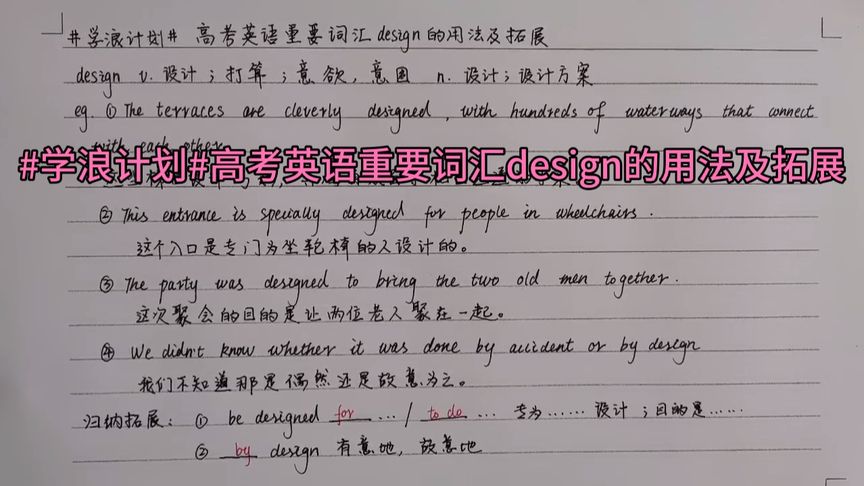 #学浪计划# 高考英语重要词汇design的用法及拓展
design v. 设计；打算；意欲，意图 n. 设计；设计方案
eg. ① The terraces are cleverly designed, with hundreds of waterways that connect
with each other.
#学浪计划#高考英语重要词汇design的用法及拓展
② This entrance is specially designed for people in wheelchairs.
这个入口是专门为坐轮椅的人设计的。
③ The party was designed to bring the two old men together.
这次聚会的目的是让两位老人聚在一起。
④ We didn't know whether it was done by accident or by design
我们不知道那是偶然还是故意为之。
归纳拓展：① be designed for ... / to do ... 专为……设计；目的是……
② by design 有意地，故意地